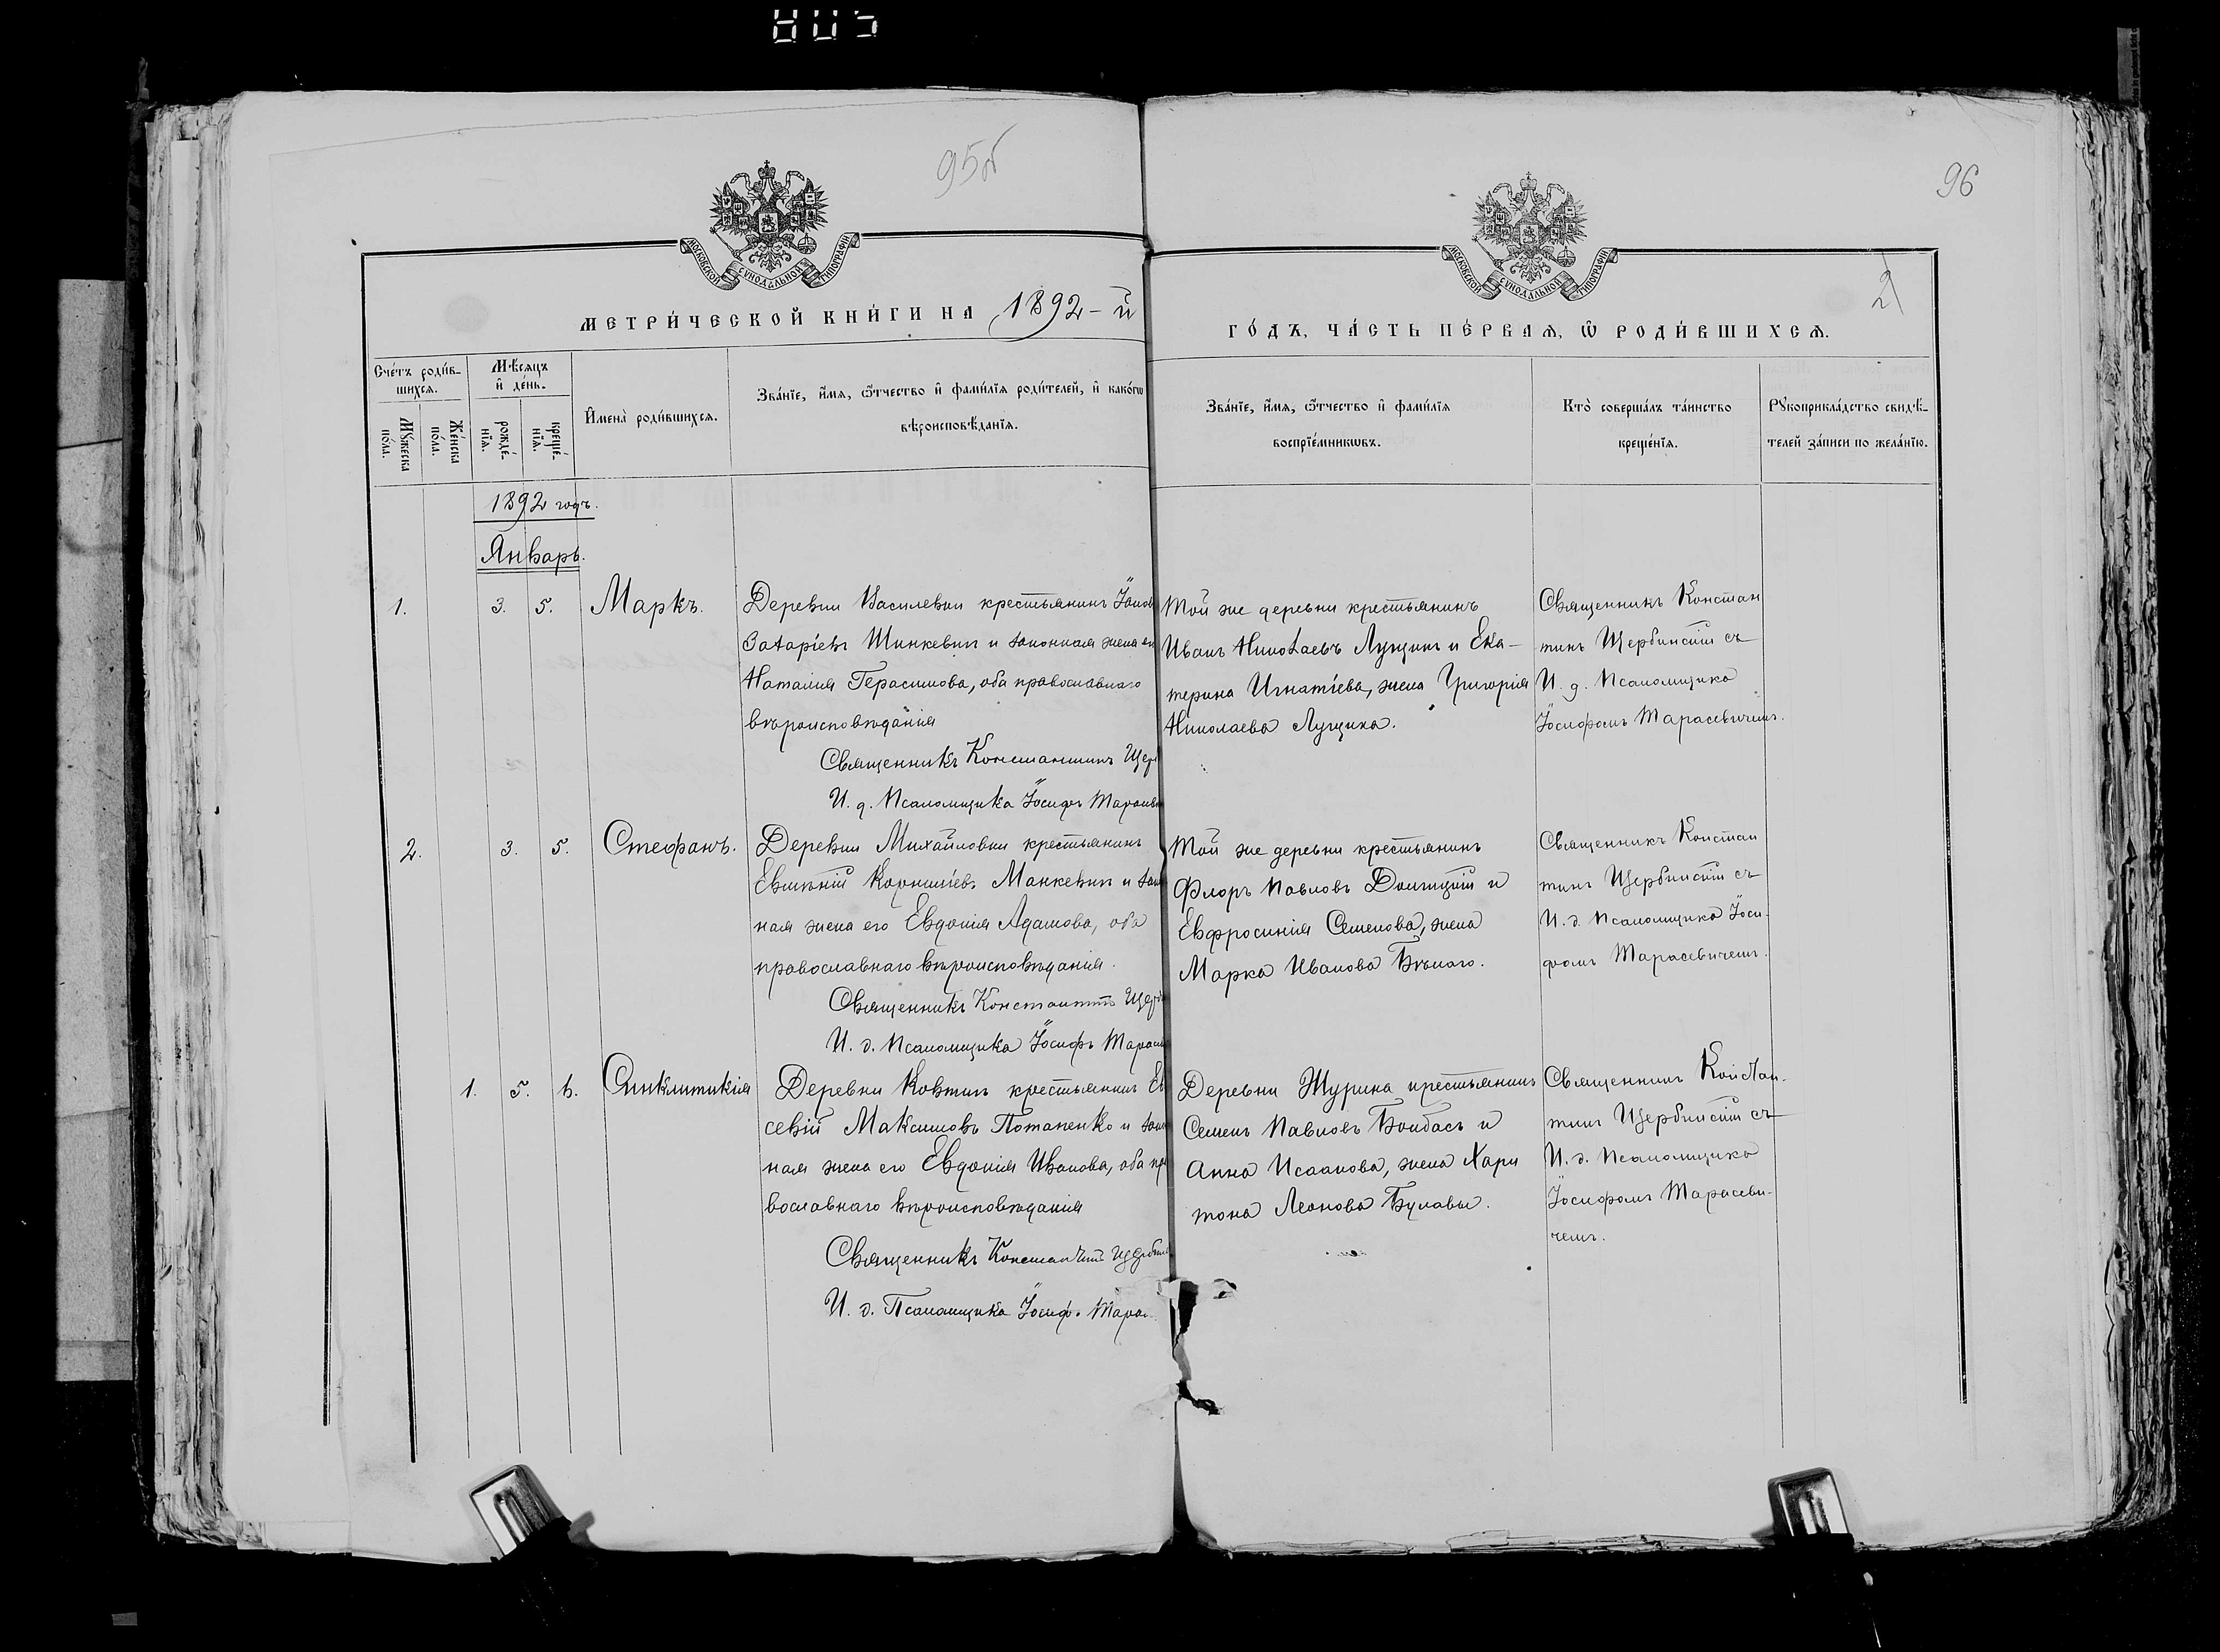 95б
96
2
МОСКОВСКОЙ СѴНОДАЛЬНОЙ ТИПОГРАФІИ
МОСКОВСКОЙ СѴНОДАЛЬНОЙ ТИПОГРАФІИ
МЕТРИ́ЧЕСКОЙ КНИ́ГИ НА 1892-й
ГО́ДЪ, ЧА́СТЬ ПЕ́РВАѦ, Ѡ҆ РОДИ́ВШИХСѦ.
Сче́тъ роди́в-
шихсѧ.
Мꙋ́жеска
по́ла.
Же́нска
по́ла.
Мѣ́сѧцъ
и҆ де́нь.
рожде́-
нїѧ.
креще́-
нїѧ.
И҆мена̀ роди́вшихсѧ.
Зва́нїе, и҆́мѧ, ѻ҆́тчество и҆ фами́лїѧ роди́телей, и҆ како́гѡ
вѣроисповѣ́данїѧ.
Зва́нїе, и҆́мѧ, ѻ҆́тчество и҆ фами́лїѧ
воспрїе́мникѡвъ.
Кто̀ соверша́лъ та́инство
креще́нїѧ.
Рꙋкоприкла́дство свидѣ́-
телей за́писи по жела́нїю.
1892 годъ.
Январь.
1. 3. 5. Маркъ.
Деревни Василевки крестьянинъ
Захаріевъ Шинкевич и законная жена
Наталия Герасимова, оба православнаго
вѣроисповѣданія
Священникъ Константинъ Щер
И. д. Псаломщика Іосифъ Тарасев
Той же деревни крестьянинъ
Иванъ Николаевъ Лущикъ и Ека-
терина Игнатіева, жена Григорія
Николаева Лущика.
Священникъ Констан
тинъ Щербинскій съ
И. д. Псаломщика
Іосифомъ Тарасевичемъ.
2. 3. 5. Стефанъ.
Деревни Михайловки крестьянинъ
Корнилиевъ Манкевич и зак
ная жена его Евдокія Адамова, оба
православнаго вѣроисповѣданія.
Священникъ Константинъ Щерб
И. д. Псаломщика Іосифъ Тарас
Той же деревни крестьянинъ
Флоръ Павловъ и
Евфросинія Семенова, жена
Марка Иванова Бѣлаго.
Священникъ Констан
тинъ Щербинскій съ
И. д. Псаломщика Іоси-
фомъ Тарасевичемъ.
1. 5. 6. Синклитикія
Деревни крестьянинъ Ев
севій Максимовъ Потапенко и зак
ная жена его Евдокія Иванова, оба пра
вославнаго вѣроисповѣданія
Священникъ Константинъ Щерби
И. д. Псаломщика Іосифъ Тарас
Деревни Журина крестьянинъ
Семенъ Павловъ и
Анна Исаакова, жена Хари
тона Леонова Булавы.
Священникъ Констан-
тинъ Щербинскій съ
И. д. Псаломщика
Іосифомъ Тарасеви-
чемъ.